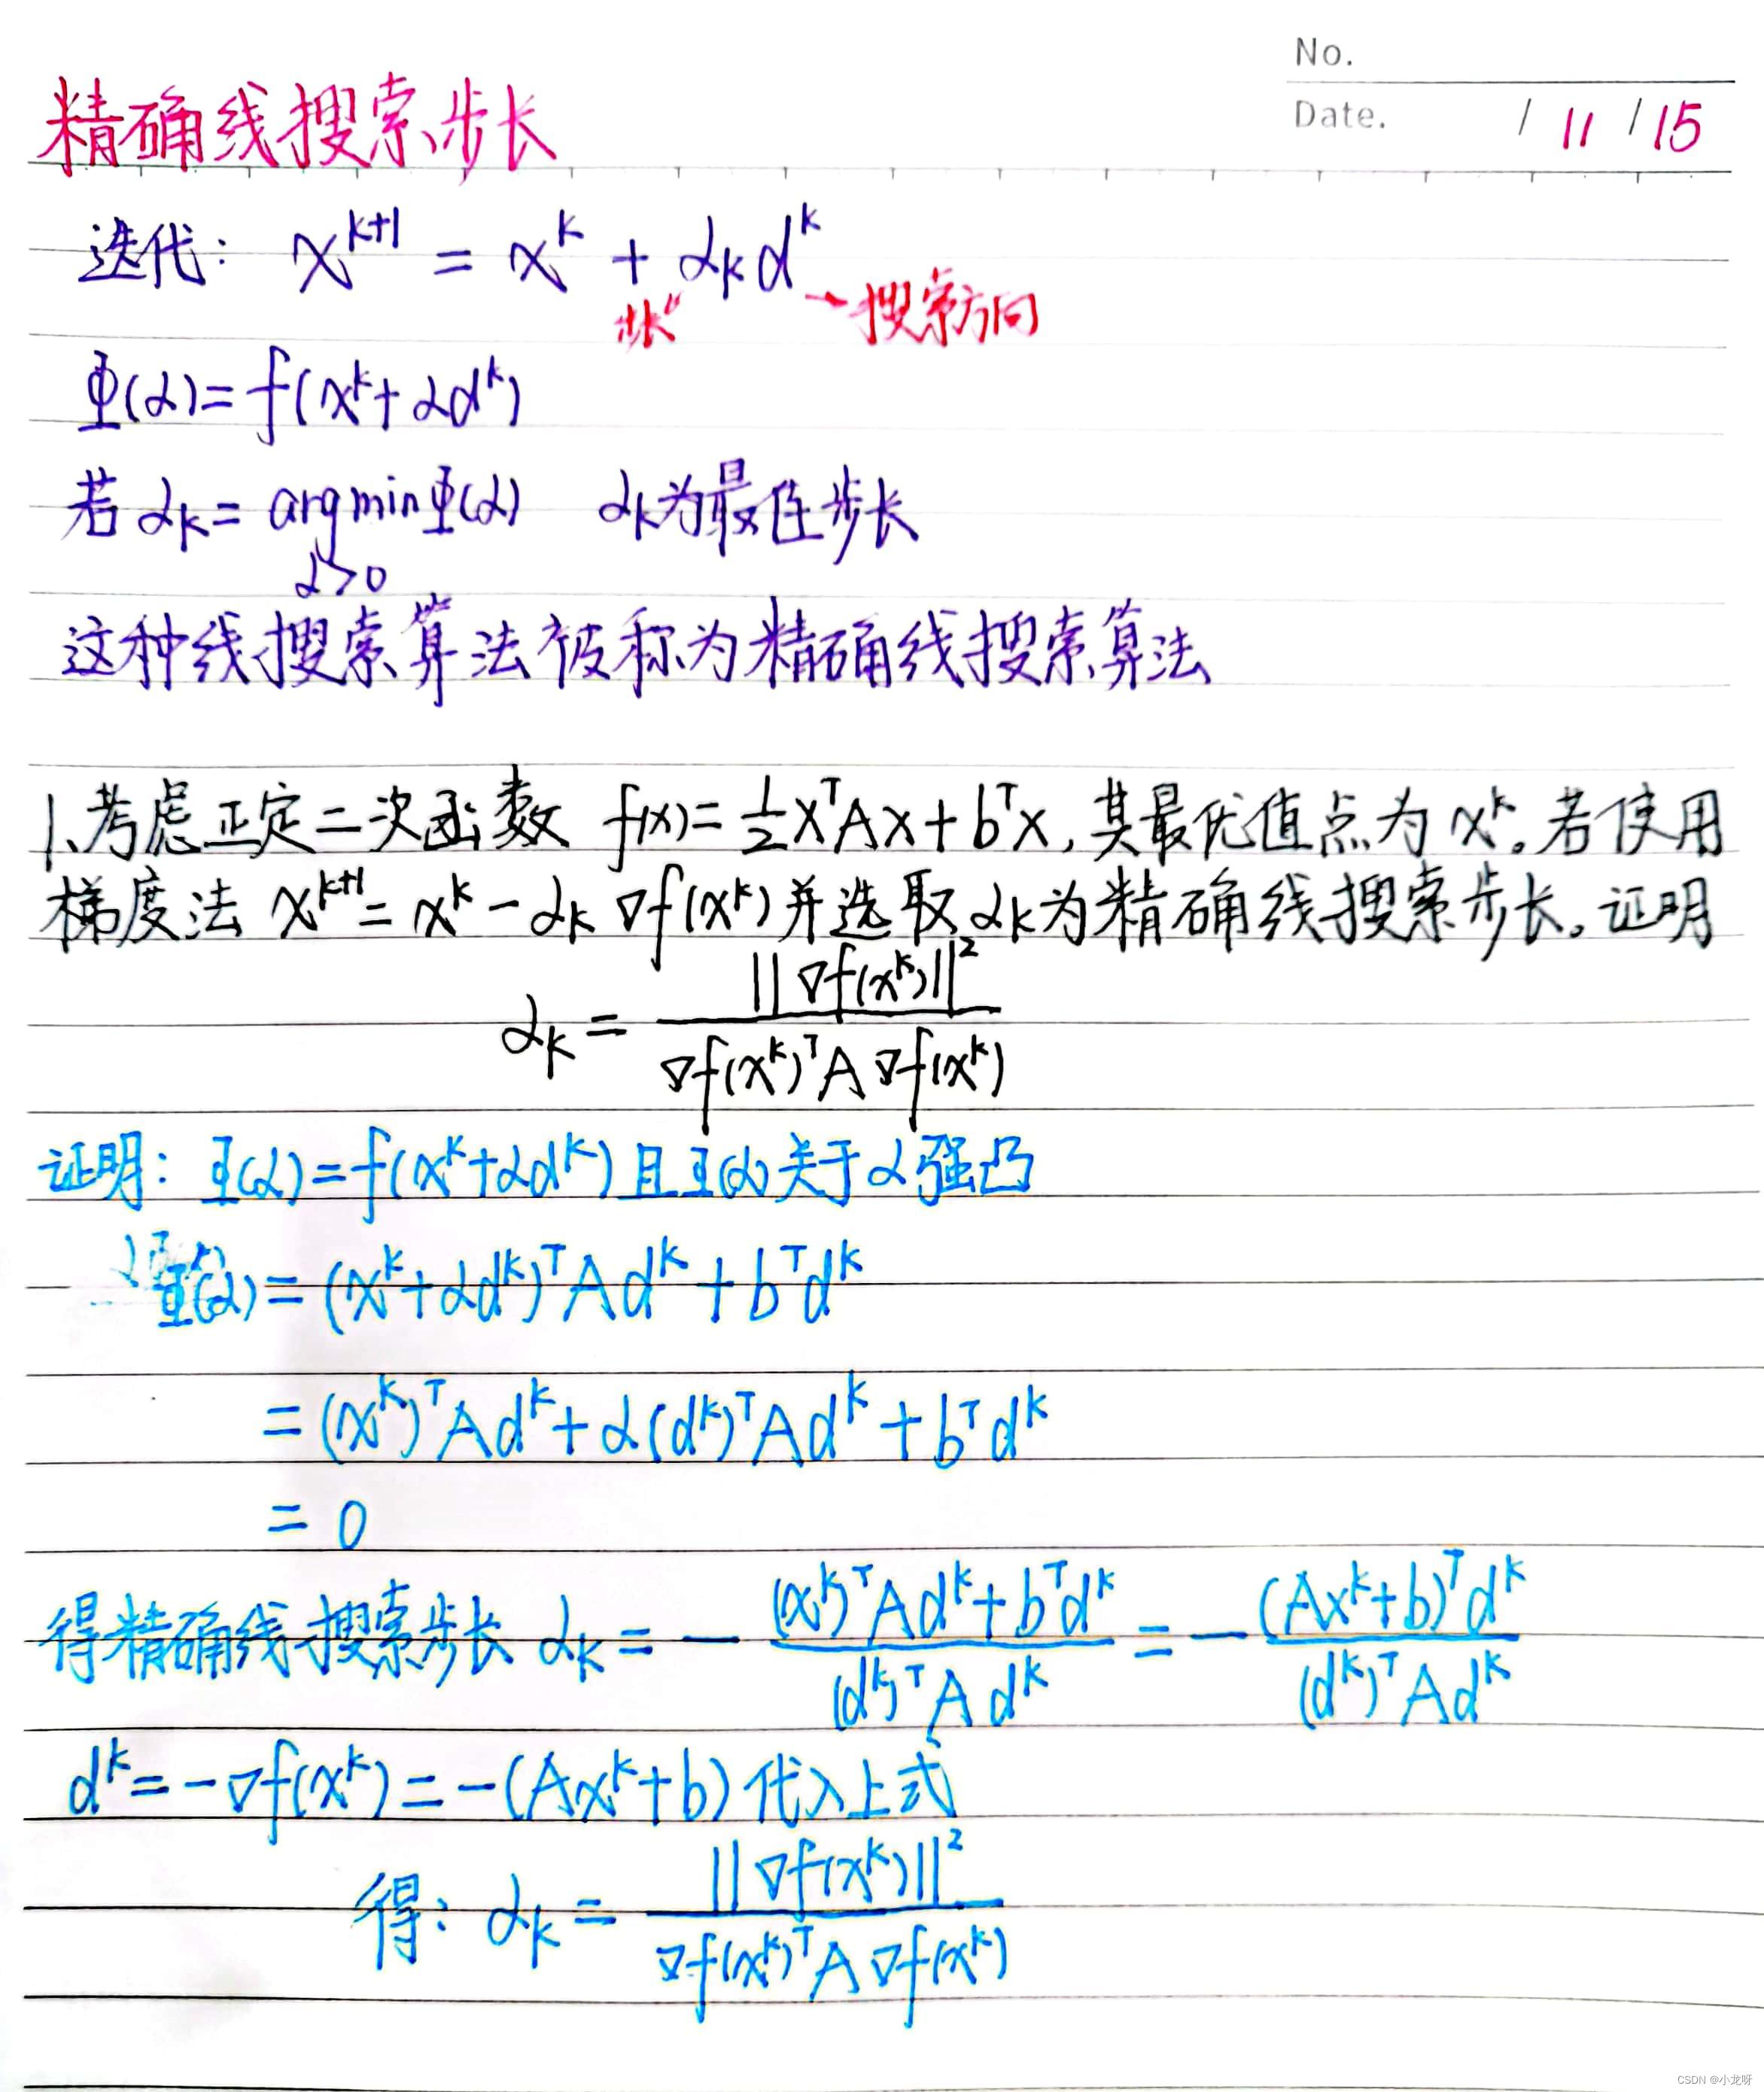 No.
Date. / 11 / 15
精确线搜索步长
迭代: x^{k+1} = x^k + α_k d^k
步长 → 搜索方向
Φ(α) = f(x^k + αd^k)
若 α_k = argmin Φ(α) α_k为最佳步长
α>0
这种线搜索算法被称为精确线搜索算法
1、考虑正定二次函数 f(x) = \frac{1}{2}x^T Ax + b^T x, 其最优值点为 x^k。若使用
梯度法 x^{k+1} = x^k - α_k ∇f(x^k) 并选取 α_k 为精确线搜索步长。证明
α_k = \frac{||∇f(x^k)||^2}{∇f(x^k)^T A ∇f(x^k)}
证明: Φ(α) = f(x^k + αd^k) 且 Φ(α) 关于 α 强凸
Φ'(α) = (x^k + αd^k)^T A d^k + b^T d^k
= (x^k)^T A d^k + α(d^k)^T A d^k + b^T d^k
= 0
得精确线搜索步长 α_k = - \frac{(x^k)^T A d^k + b^T d^k}{(d^k)^T A d^k} = - \frac{(Ax^k + b)^T d^k}{(d^k)^T A d^k}
d^k = -∇f(x^k) = -(Ax^k + b) 代入上式
得: α_k = \frac{||∇f(x^k)||^2}{∇f(x^k)^T A ∇f(x^k)}
CSDN @小龙呀